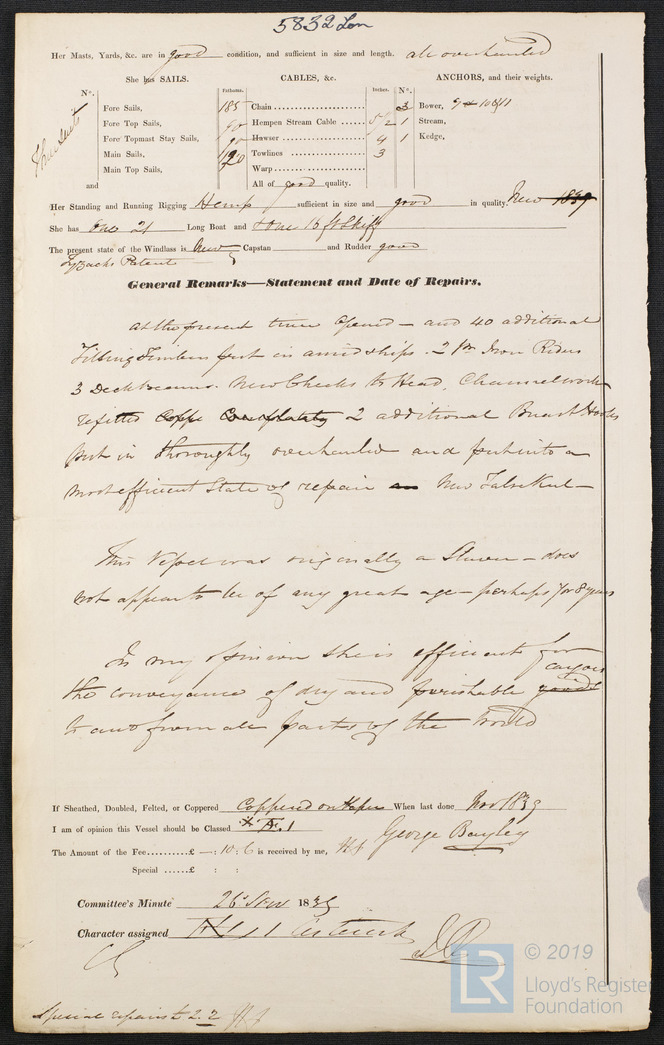 5832 Lon
Her Masts, Yards, &c. are in good condition, and sufficient in size and length. all overhauled
She has SAILS.
CABLES, &c.
ANCHORS, and their weights.
N°.
Fathoms.
Inches.
N°.
Fore Sails, 185 Chain 3 Bower,
Fore Top Sails, 90 Hempen Stream Cable 5 1/2 1 Stream,
Fore Topmast Stay Sails, 90 Hawser 4 1 Kedge,
Main Sails, 120 Towlines 3
Main Top Sails, Warp
and All of good quality.
Her Standing and Running Rigging Hemp sufficient in size and good in quality. New 1839
She has One 21 Long Boat and One 16 ft Skiff
The present state of the Windlass is New Capstan and Rudder good
Tyzacks Patent
General Remarks—Statement and Date of Repairs.
At the present time Opened – and 40 additional
Filling Timbers put in amidships. 2 Pr Iron Riders
3 Deck beams. New Cheeks to Head, Channelwork
refitted 2 additional Breast Hooks
put in thoroughly overhauled and put into a
most efficient State of repair New False Keel –
This Vessel was originally a Slaver – does
not appear to be of any great age – perhaps 7 or 8 years
In my opinion she is efficient for
the conveyance of dry and perishable goods cargoes
to and from all parts of the World
If Sheathed, Doubled, Felted, or Coppered Coppered on When last done Nov 1839
I am of opinion this Vessel should be Classed Æ. 1
The Amount of the Fee..........£ — : 10 : 6 is received by me, George Bayley
Special ......£ : :
Committee's Minute 26 Nov 1839
Character assigned Æ 1
Special repairs
LR
© 2019
Lloyd's Register
Foundation